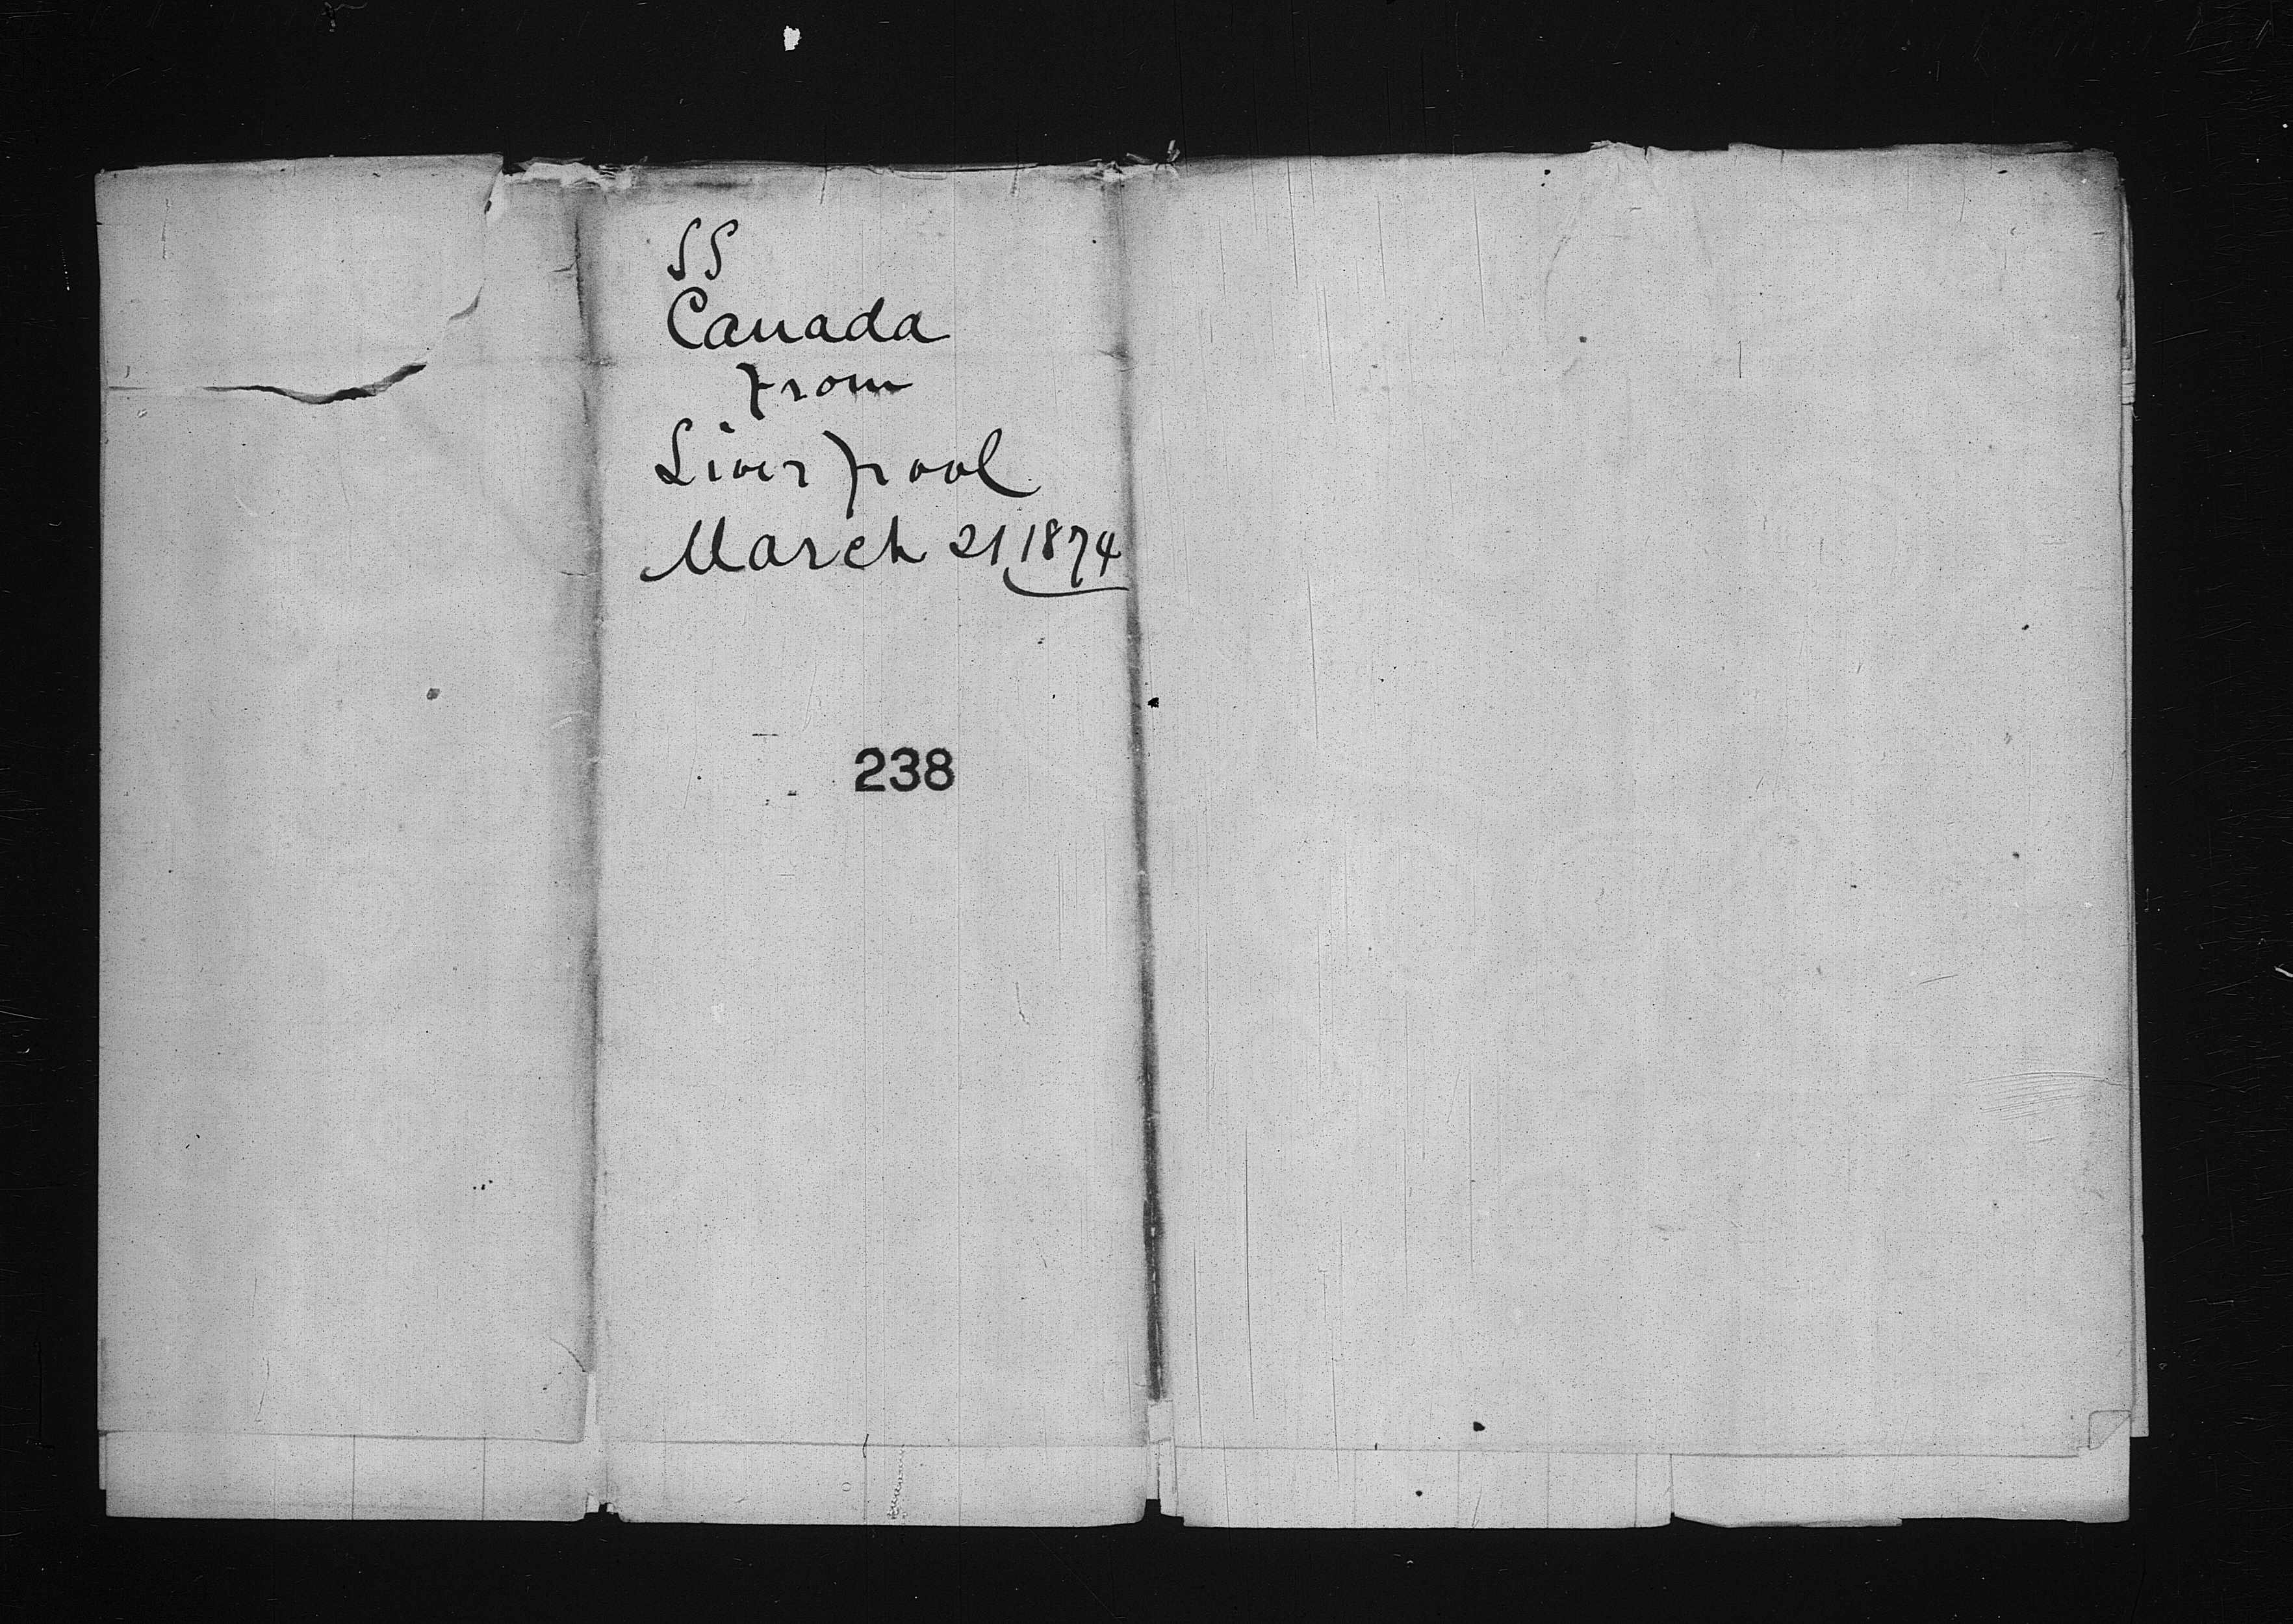 SS
Canada
from
Liverpool
March 21 1874
238